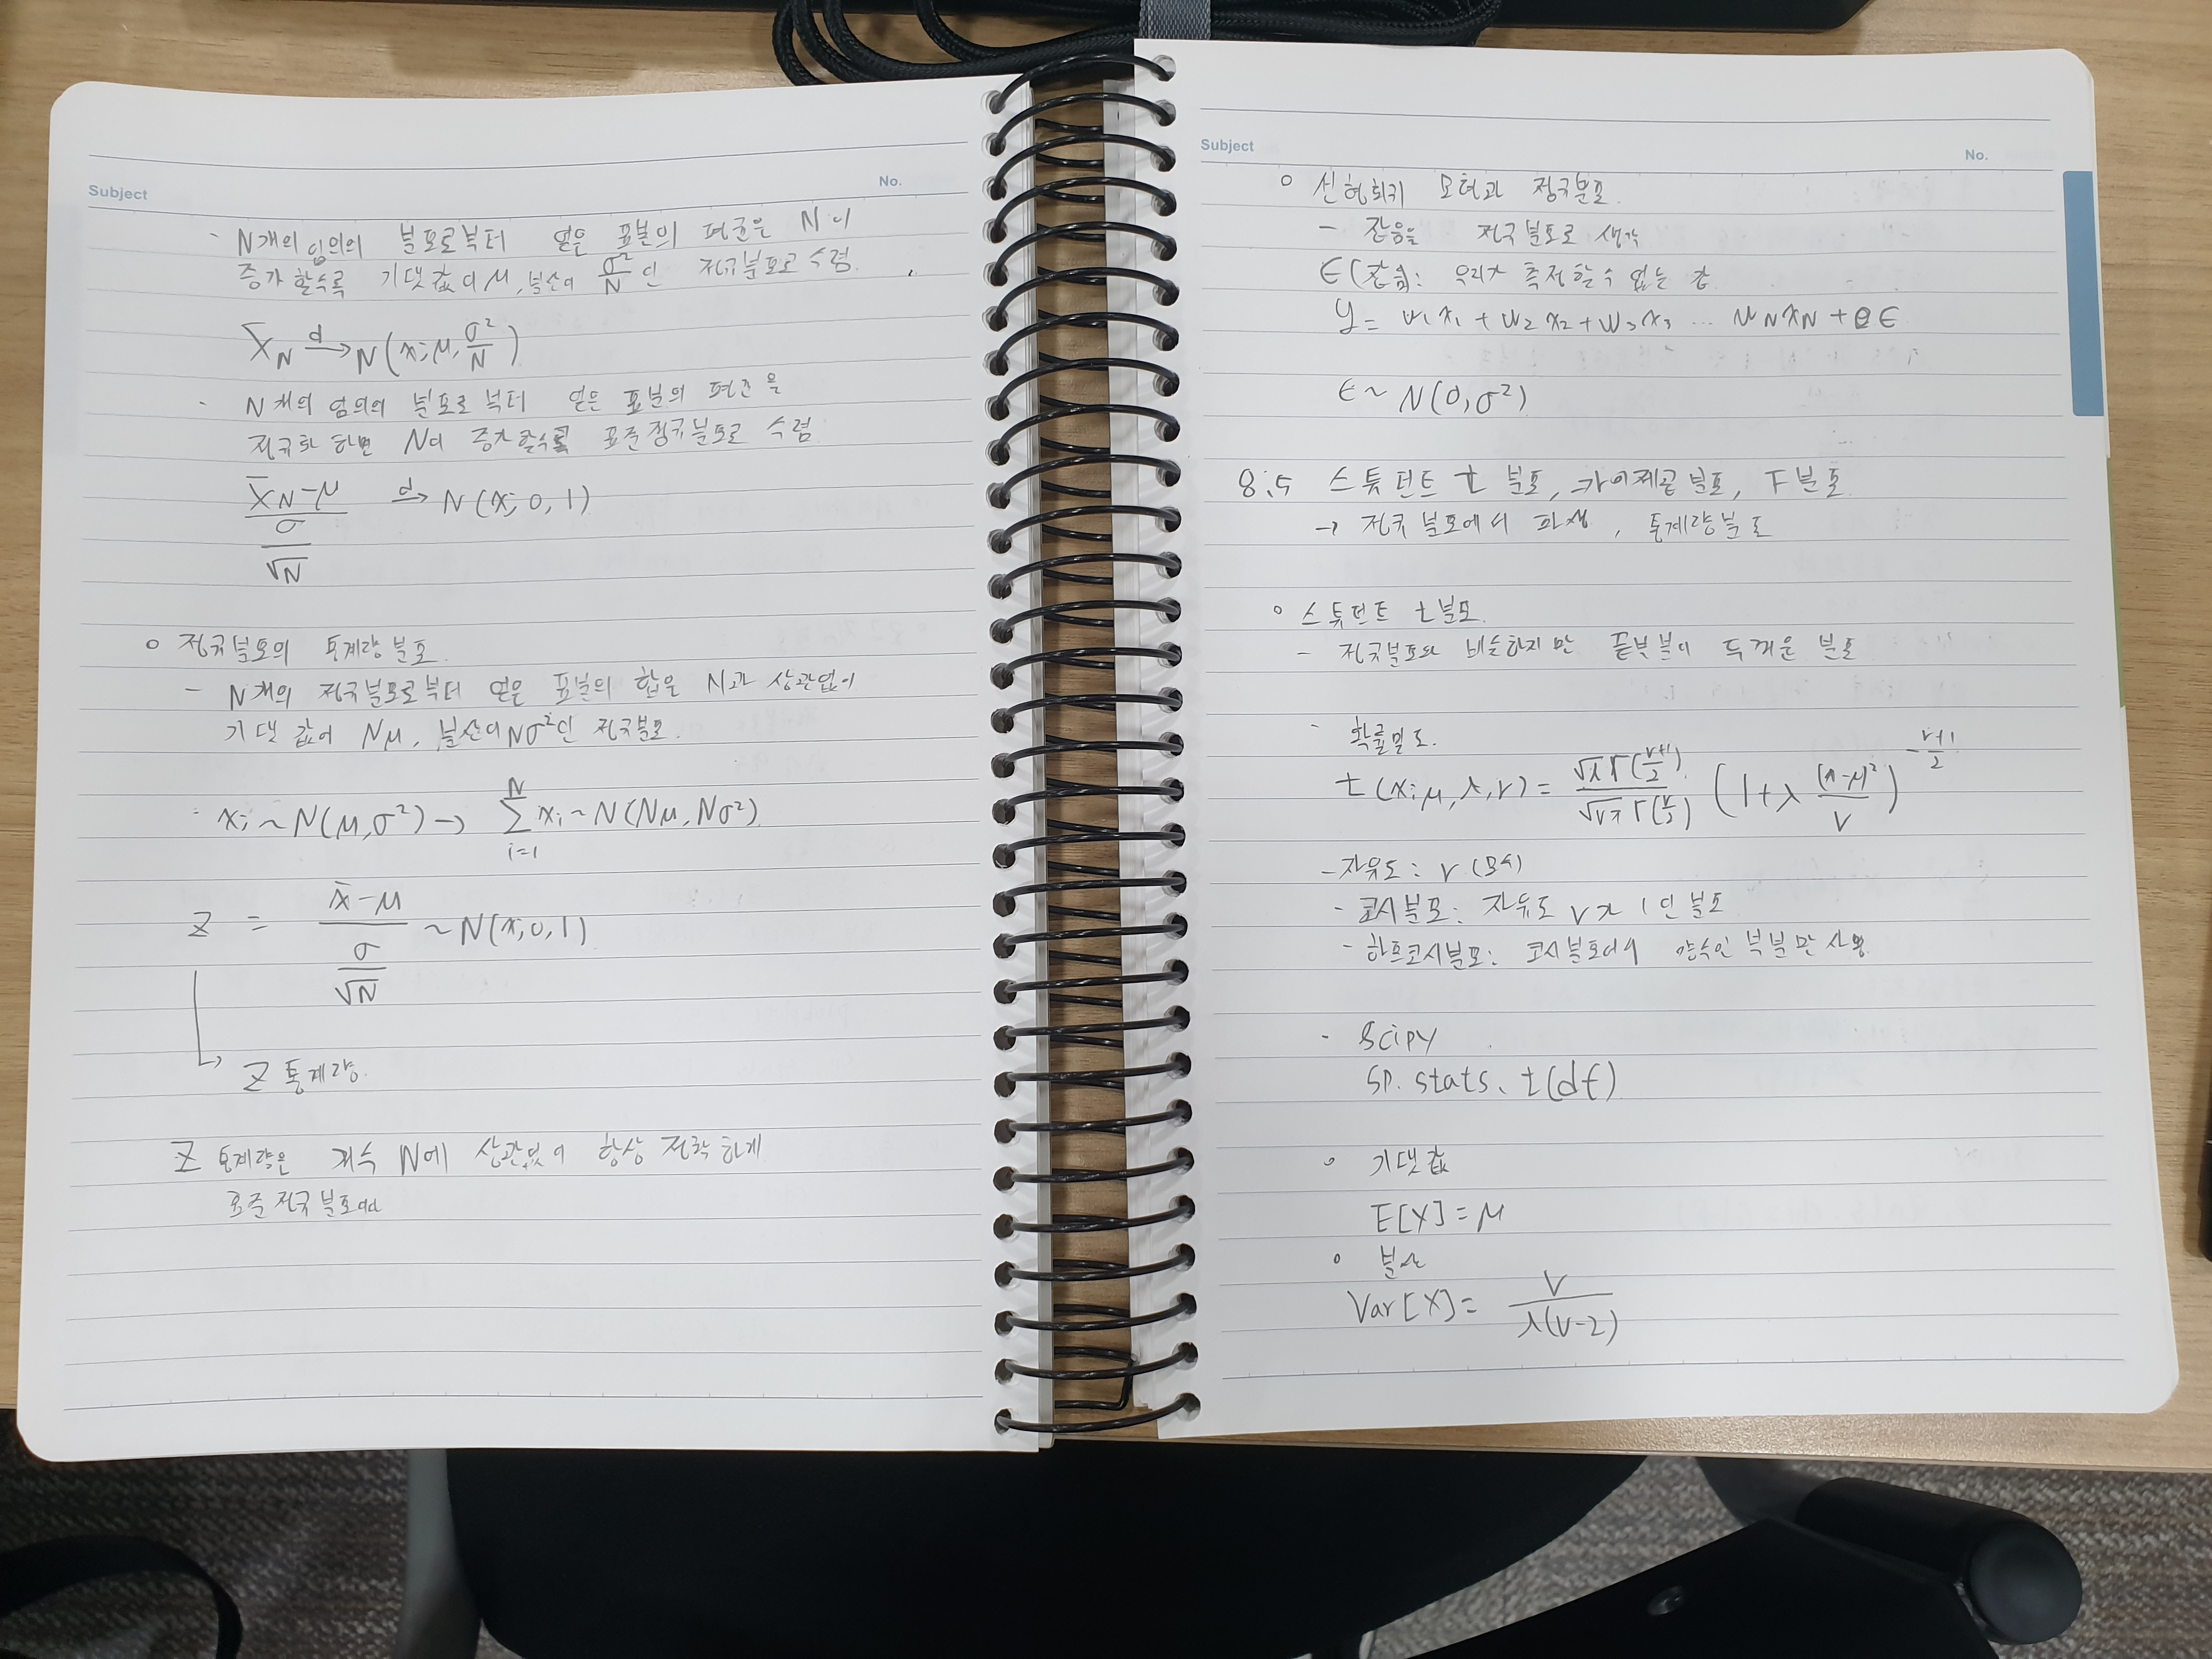 Subject
No.
- N개의 임의의 분포로부터 얻은 표본의 평균은 N이
증가할수록 기댓값이 μ, 분산이 σ²/N 인 정규분포로 수렴.
X̄_N →^d N(x; μ, σ²/N)
- N개의 임의의 분포로부터 얻은 표본의 평균을
정규화 하면 N이 증가할수록 표준정규분포로 수렴
(X̄_N - μ) / (σ/√N) →^d N(x; 0, 1)
○ 정규분포의 통계량분포.
- N개의 정규분포로부터 얻은 표본의 합은 N과 상관없이
기댓값이 Nμ, 분산이 Nσ²인 정규분포.
x_i ~ N(μ, σ²) → Σ_{i=1}^{N} x_i ~ N(Nμ, Nσ²)
Z = (x̄ - μ) / (σ/√N) ~ N(x; 0, 1)
↳ Z 통계량.
Z 통계량은 개수 N에 상관없이 항상 정확하게
표준정규분포
Subject
No.
○ 선형회귀 모형과 정규분포.
- 잡음을 정규분포로 생각
ε(잡음): 우리가 측정할수 없는 값
y = w₁x₁ + w₂x₂ + w₃x₃ ... w_N x_N + ε
ε ~ N(0, σ²)
8.5 스튜던트 t 분포, 카이제곱분포, F분포
→ 정규분포에서 파생, 통계량분포
○ 스튜던트 t분포.
- 정규분포와 비슷하지만 끝부분이 두꺼운 분포
- 확률밀도.
t(x; μ, λ, ν) = (√λ Γ((ν+1)/2)) / (√νπ Γ(ν/2)) (1 + λ (x-μ)²/ν)^(-(ν+1)/2)
- 자유도: ν (모수)
- 코시분포: 자유도 ν가 1인 분포
- 하프코시분포: 코시분포에서 양수인 부분만 사용
- Scipy
sp. stats. t(df)
○ 기댓값
E[X] = μ
○ 분산
Var[X] = ν / (λ(ν-2))